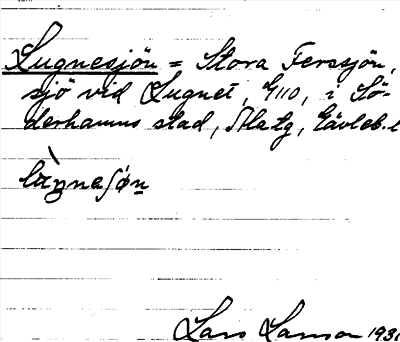 Lugnesjön = Stora Ferssjön,
sjö vid Lugnet, G110, i Sö-
derhamns stad, Hlstg, Gävleb. l
Lars Larsson 193